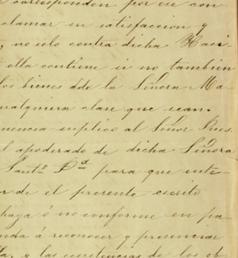 corresponden por su con
clamar en satisfaccion y
, no solo contra dicha Haci
ella contiene si no tambien
los bienes de la Señora Ma
ualquiera clase que sean.
nuencia suplico al Señor Jues
el apoderado de dicha Señora
para que
r de el presente escrito
haga ó no conforme en
nda á reconocer y